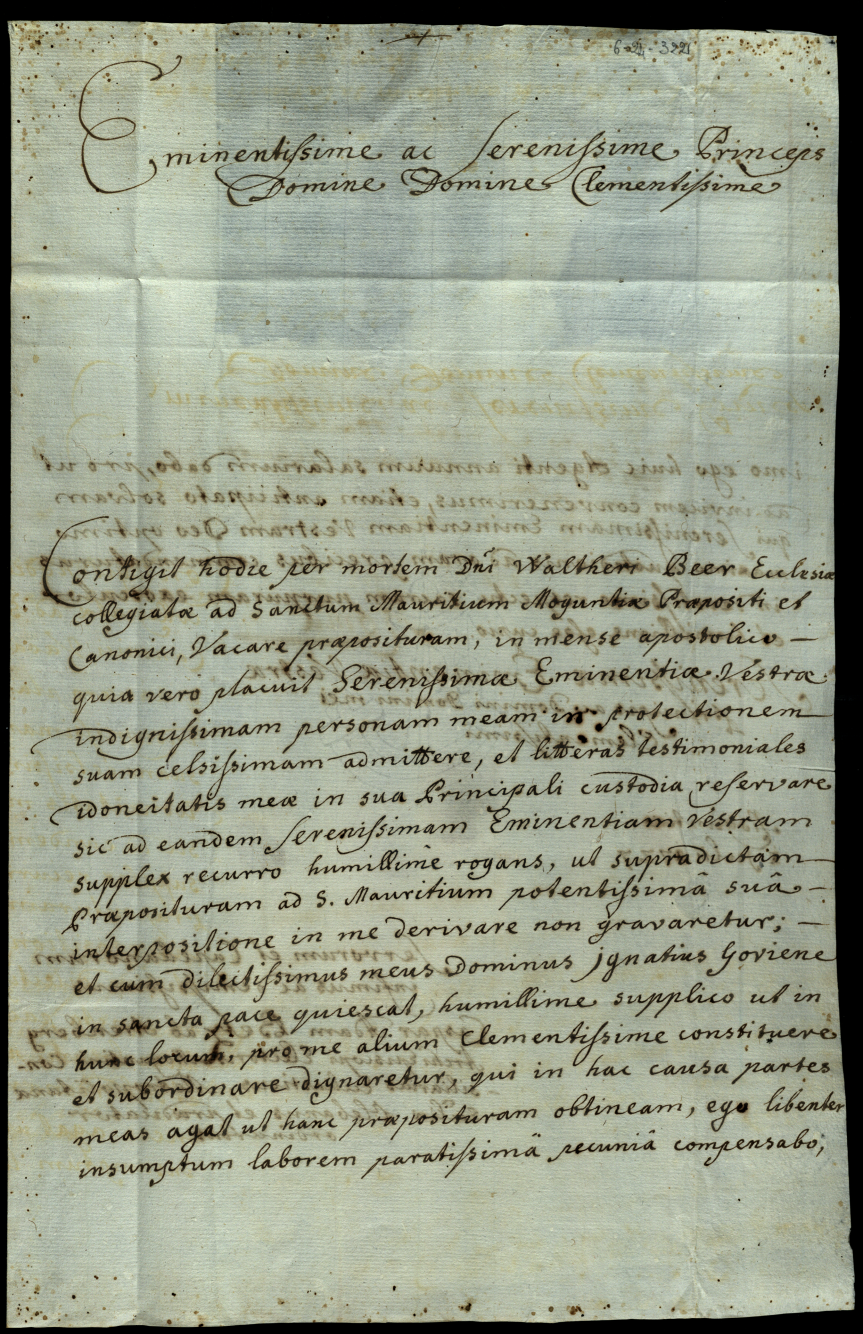 6-21-3221
Eminentissime ac Serenissime Princeps
Domine Domine Clementissime
Contigit hodie per mortem Dn̄i Waltheri Beer Ecclesiæ
collegiatæ ad Sanctum Mauritium Moguntiæ Præpositi et
Canonici, Vacare præposituram, in mense apostolico –
quia vero placuit Serenissimæ Eminentiæ Vestræ
indignissimam personam meam in protectionem
suam celsissimam admittere, et litteras testimoniales
idoneitatis meæ in sua Principali custodia reservare
sic ad eandem Serenissimam Eminentiam Vestram
supplex recurro humillime rogans, ut supradictam
Præposituram ad S. Mauritium potentissimâ suâ –
interpositione in me derivare non gravaretur; –
et cum dilectissimus meus Dominus Ignatius Goriene
in sancta pace quiescat, humillime supplico ut in
hunc locum, pro me alium Clementissime constituere
et subordinare dignaretur, qui in hac causa partes
meas agat ut hanc præposituram obtineam, ego libenter
insumptum laborem paratissimâ pecuniâ compensabo,